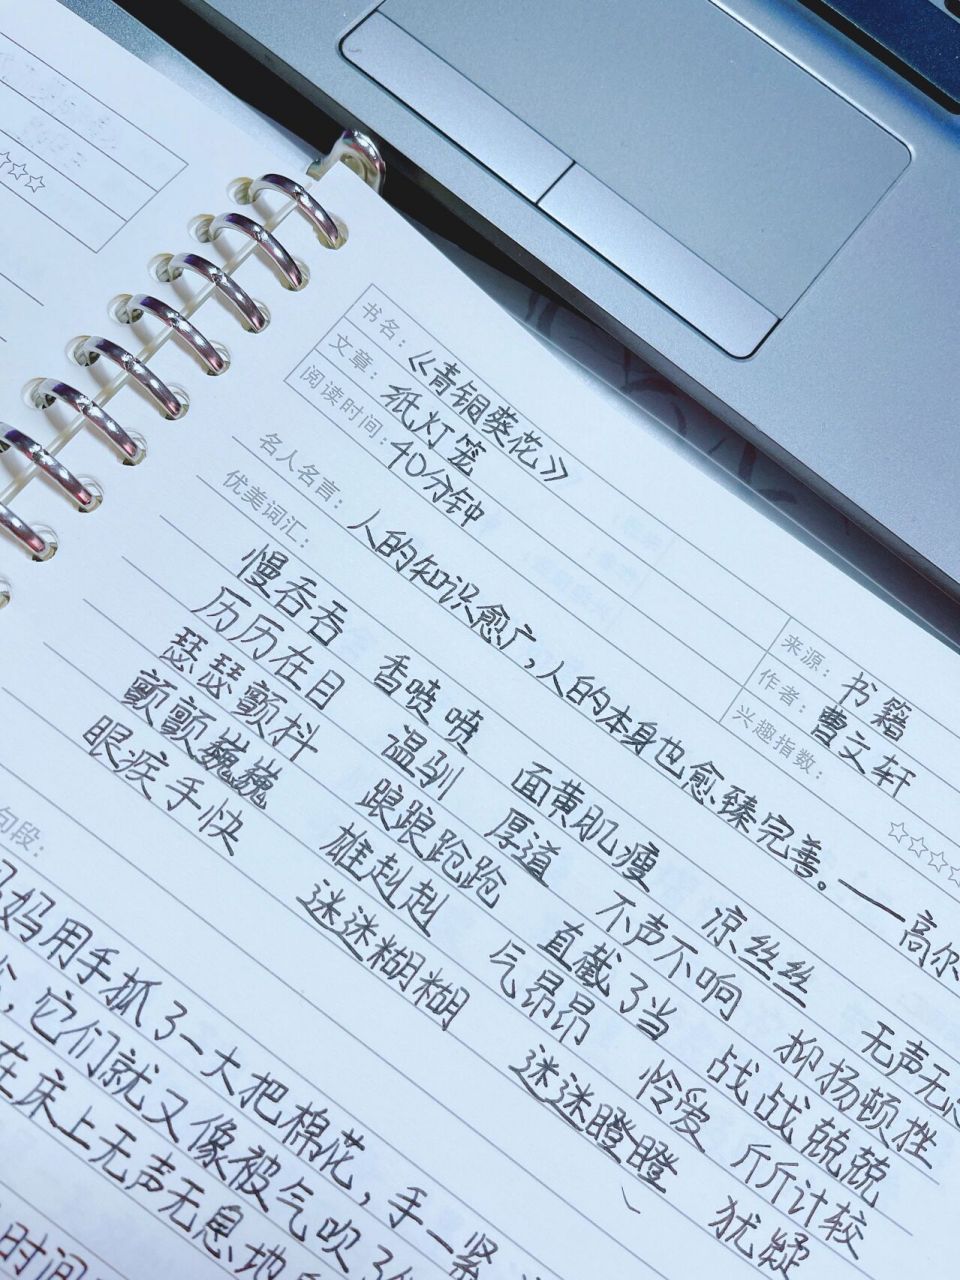 书名：《青铜葵花》 来源：书籍
文章：纸灯笼 作者：曹文轩
阅读时间：40分钟 兴趣指数：☆☆☆☆
名人名言：人的知识愈广，人的本身也愈臻完善。——高尔
优美词汇：
慢吞吞 香喷喷 面黄肌瘦 凉丝丝 无声无息
历历在目 温驯 厚道 不声不响 抑扬顿挫
瑟瑟颤抖 踉踉跄跄 直截了当 战战兢兢
颤颤巍巍 雄赳赳 气昂昂 怜爱 斤斤计较
眼疾手快 迷迷糊糊 迷迷瞪瞪 犹疑
句段：
妈妈用手抓了一大把棉花，手一紧
，它们就又像被气吹了
在床上无声无息地
时间